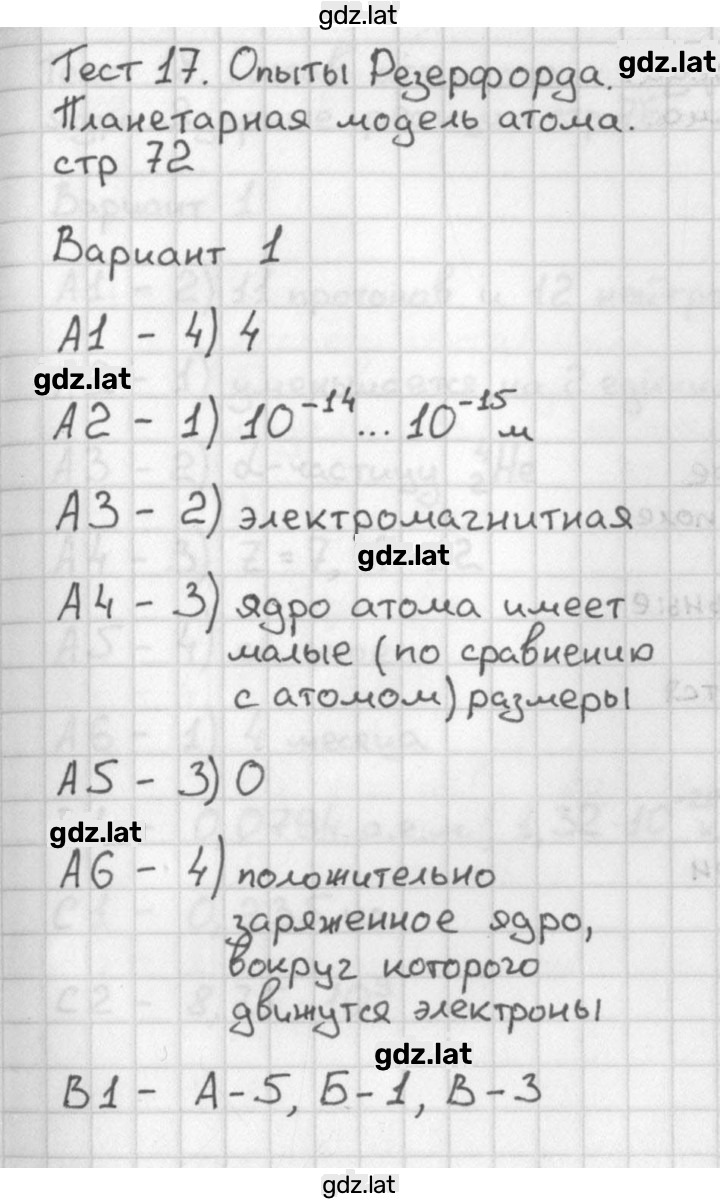 gdz.lat
Тест 17. Опыты Резерфорда.
gdz.lat
Планетарная модель атома.
стр 72
Вариант 1
А1 - 4) 4
gdz.lat
А2 - 1) 10⁻¹⁴... 10⁻¹⁵ м
А3 - 2) электромагнитная
gdz.lat
А4 - 3) ядро атома имеет
малые (по сравнению
с атомом) размеры
А5 - 3) 0
gdz.lat
А6 - 4) положительно
заряженное ядро,
вокруг которого
движутся электроны
gdz.lat
В1 - А-5, Б-1, В-3
gdz.lat